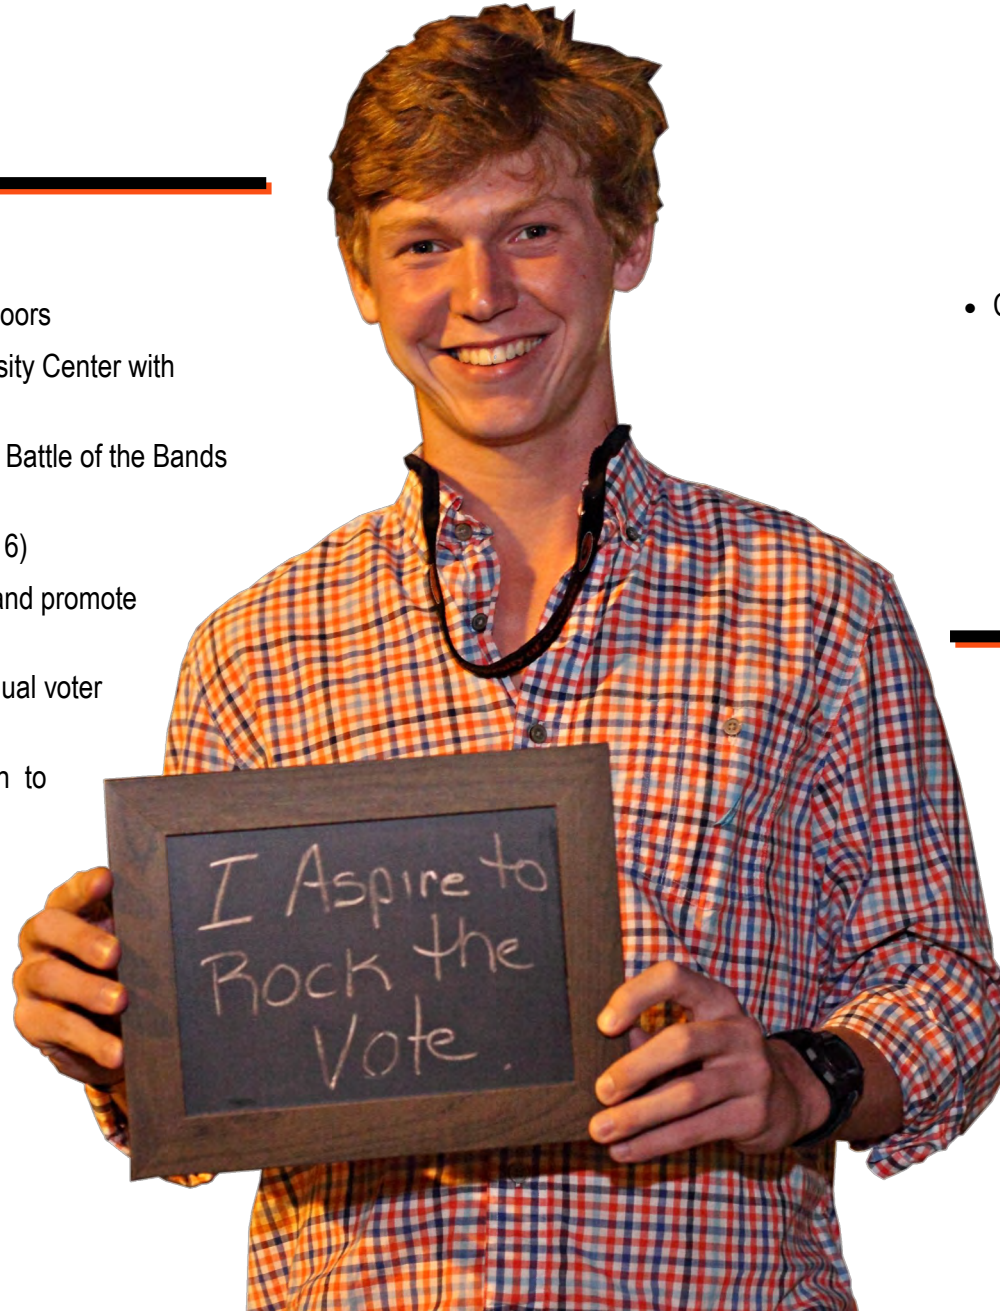 oors
sity Center with
Battle of the Bands
6)
and promote
ual voter
to
I Aspire to
Rock the
Vote.